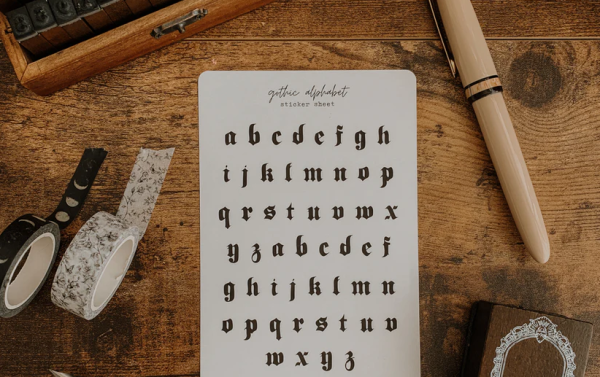 gothic alphabet
sticker sheet
a b c d e f g h
i j k l m n o p
q r s t u v w x
y z a b c d e f
g h i j k l m n
o p q r s t u v
w x y z